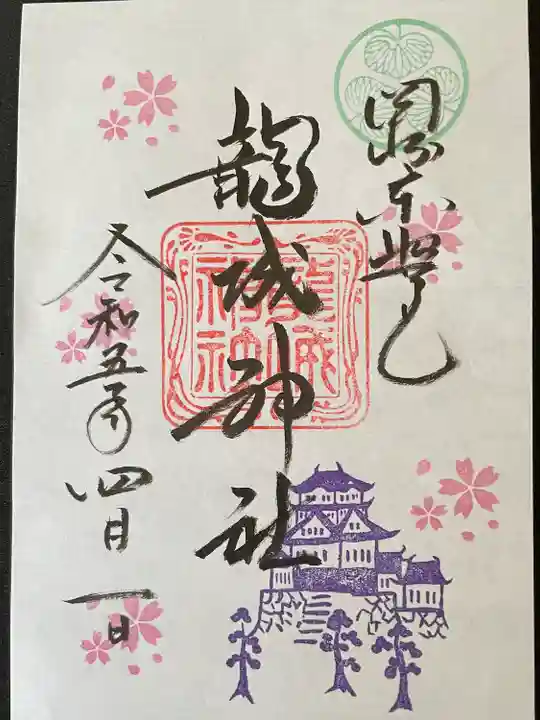 岡崎東照宮
龍城神社
令和五年四月一日
龍城
神社